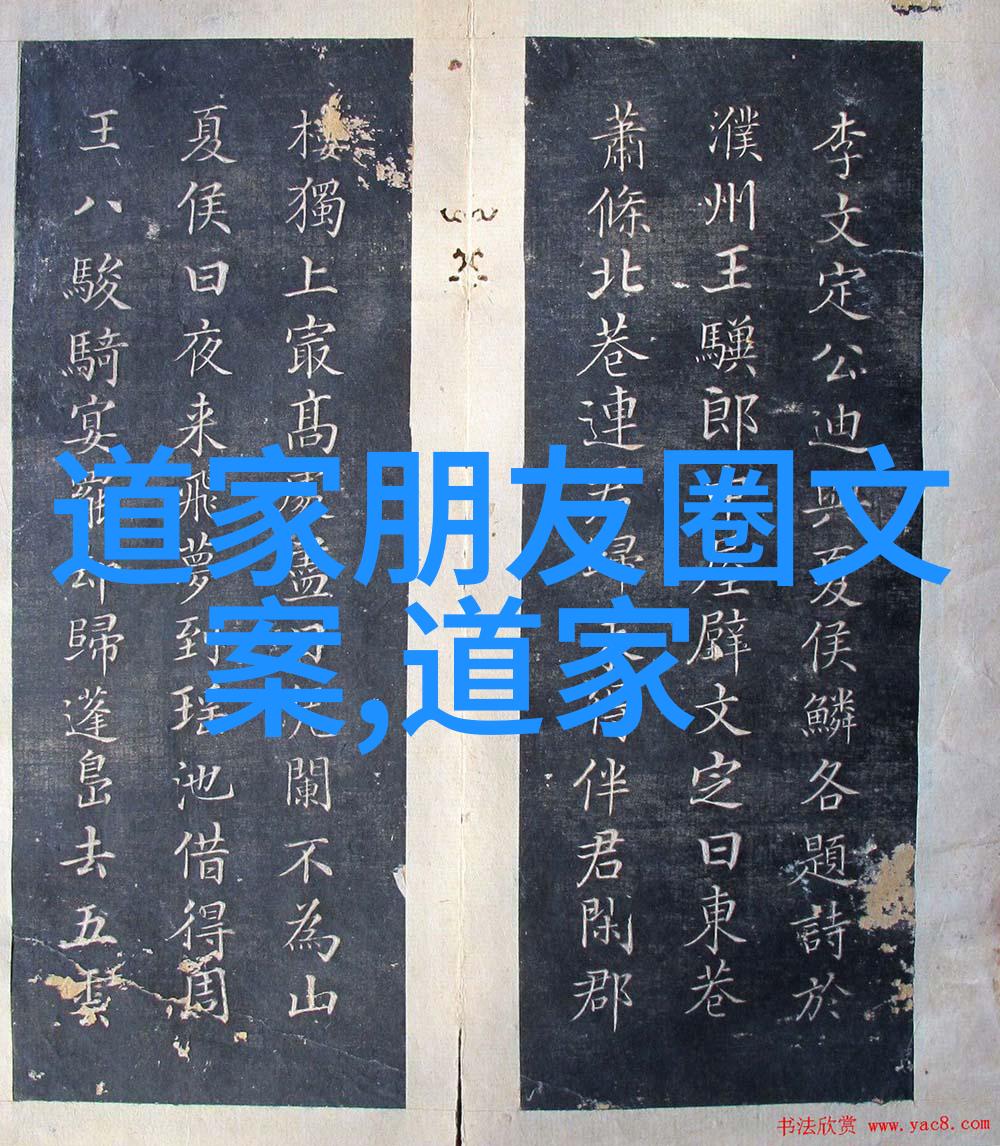 李文定公迪與夏侯鱗各題詩於
濮州王郎壁文定曰東巷
蕭條北巷連伴君閑郡
樓獨上㝡髙處盡闌不為山
夏侯曰夜来飛夢到瑶池借得周
王八駿騎宴罷却歸蓬島去五雲
道家朋友圈文
案,道家
书法欣赏 www.yac8.com